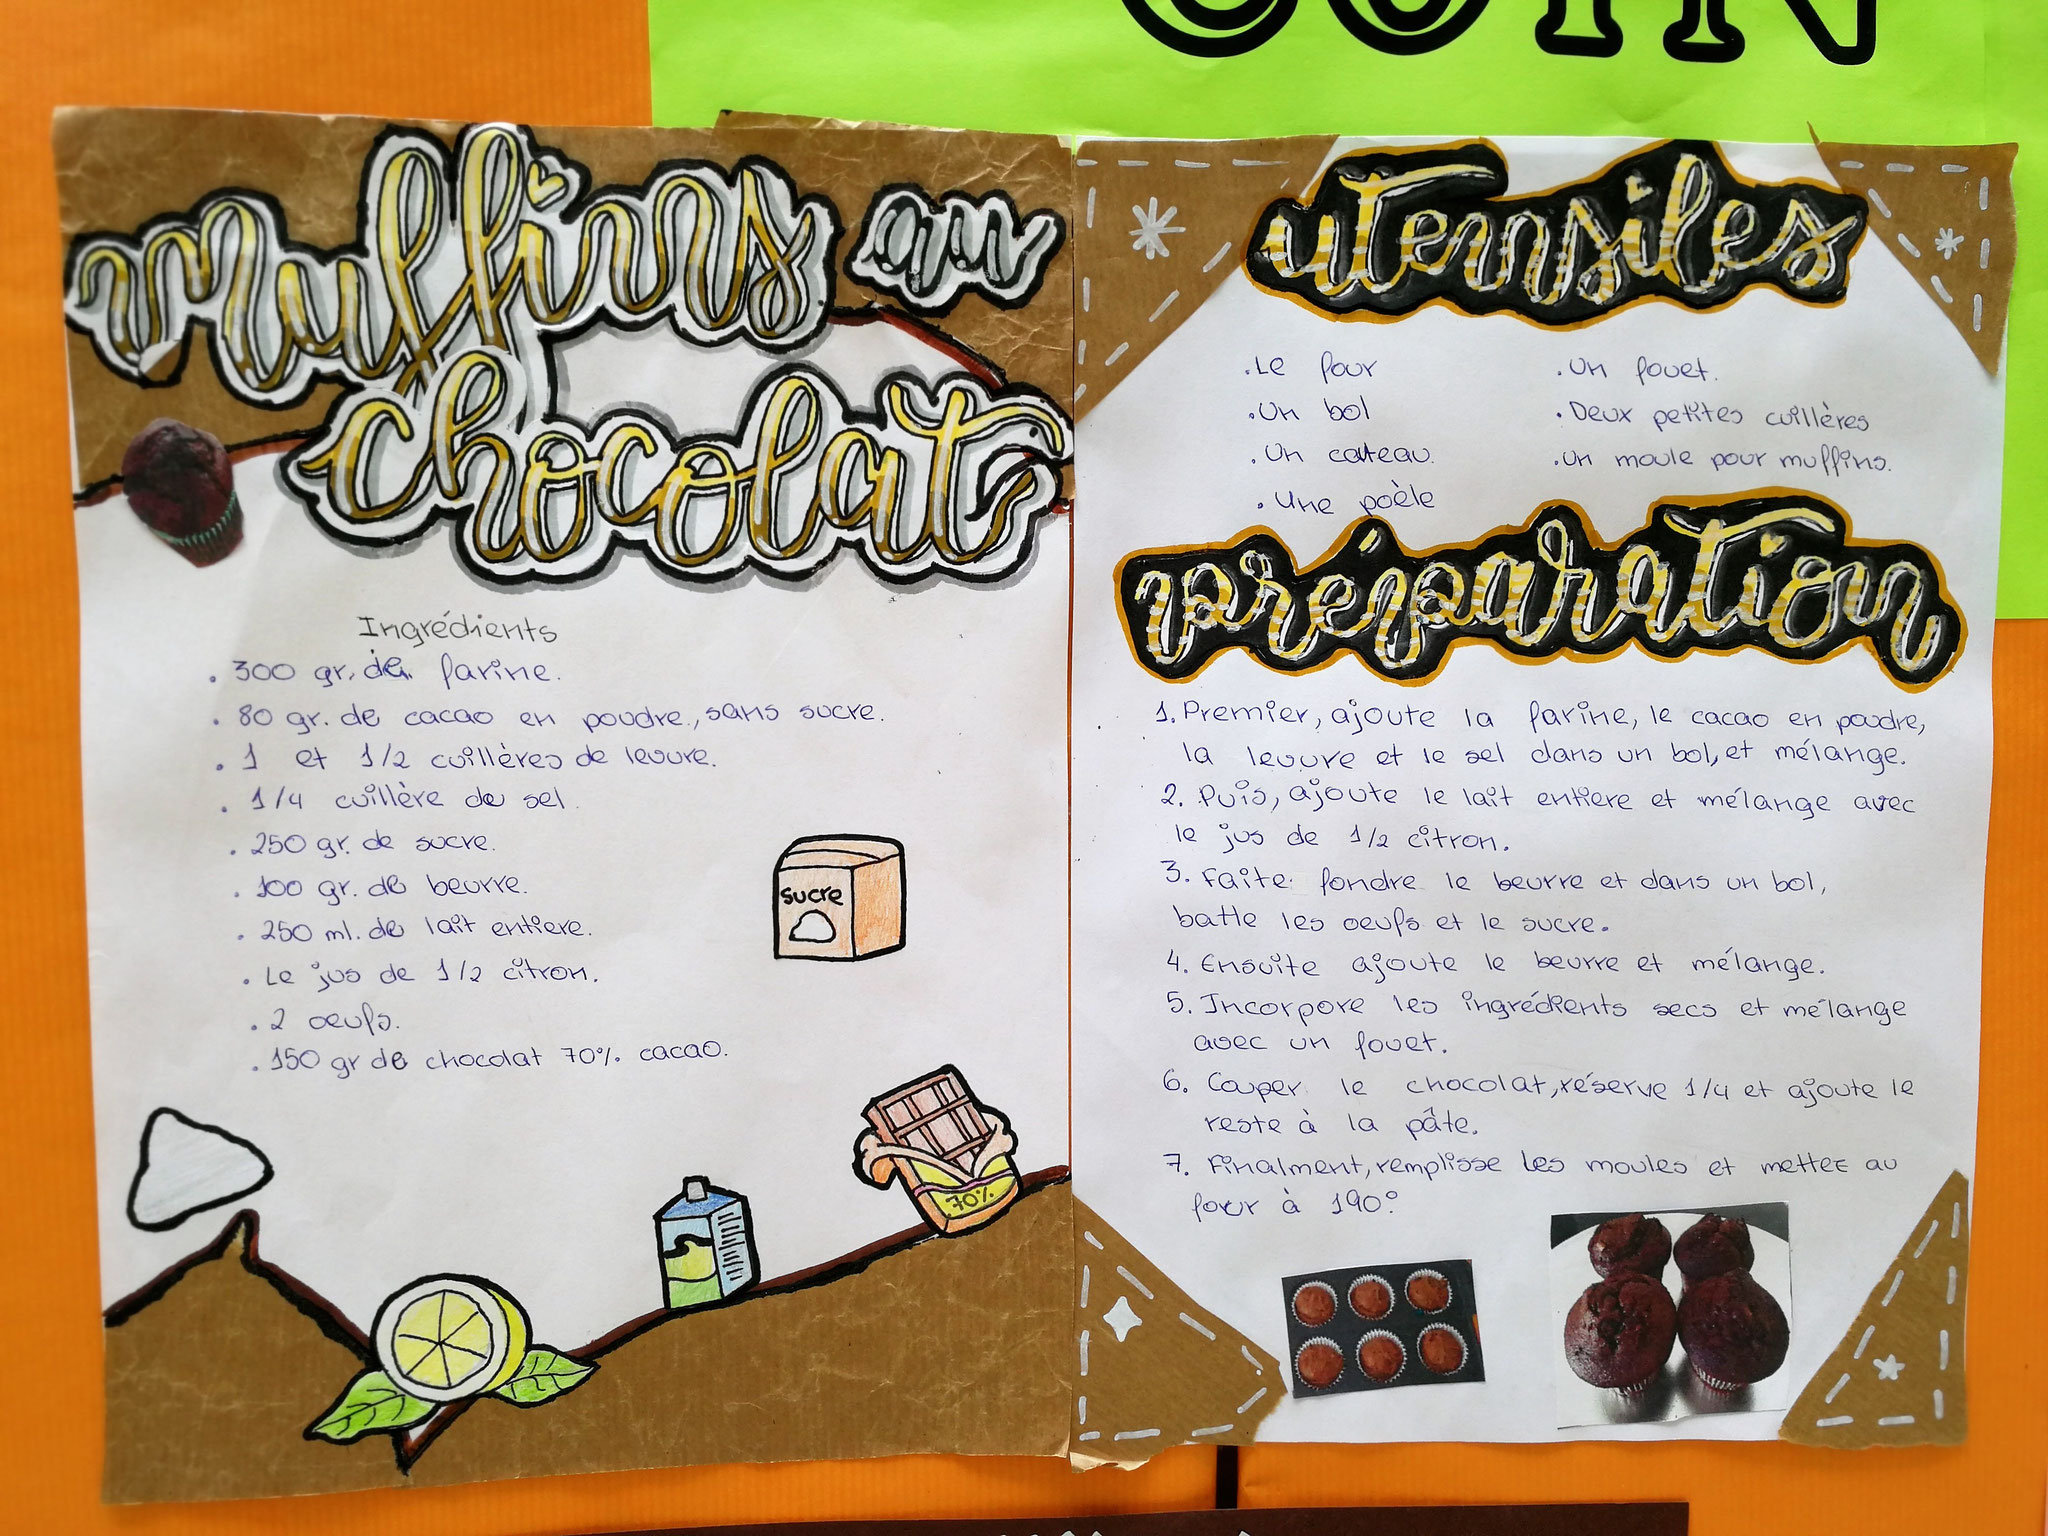 COIN
muffins au
chocolat
Ingrédients
. 300 gr. de farine.
. 80 gr. de cacao en poudre., sans sucre.
. 1 et 1/2 cuillères de levure.
. 1/4 cuillère de sel.
. 250 gr. de sucre.
. 100 gr. de beurre.
. 250 ml. de lait entiere.
. Le jus de 1/2 citron.
. 2 oeufs.
. 150 gr de chocolat 70% cacao.
sucre
70%
utensiles
. Le four
. Un bol
. Un cateau.
. Une poèle
. Un fouet.
. Deux petites cuillères
. Un moule pour muffins.
préparation
1. Premier, ajoute la farine, le cacao en poudre,
la levure et le sel dans un bol, et mélange.
2. Puis, ajoute le lait entiere et mélange avec
le jus de 1/2 citron.
3. Faite fondre le beurre et dans un bol,
batte les oeufs et le sucre.
4. Ensuite ajoute le beurre et mélange.
5. Incorpore les ingrédients secs et mélange
avec un fouet.
6. Couper le chocolat, réserve 1/4 et ajoute le
reste à la pâte.
7. Finalment, remplisse les moules et mettee au
four à 190°.